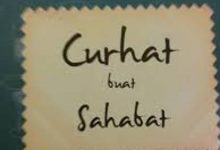 Curhat
buat
Sahabat